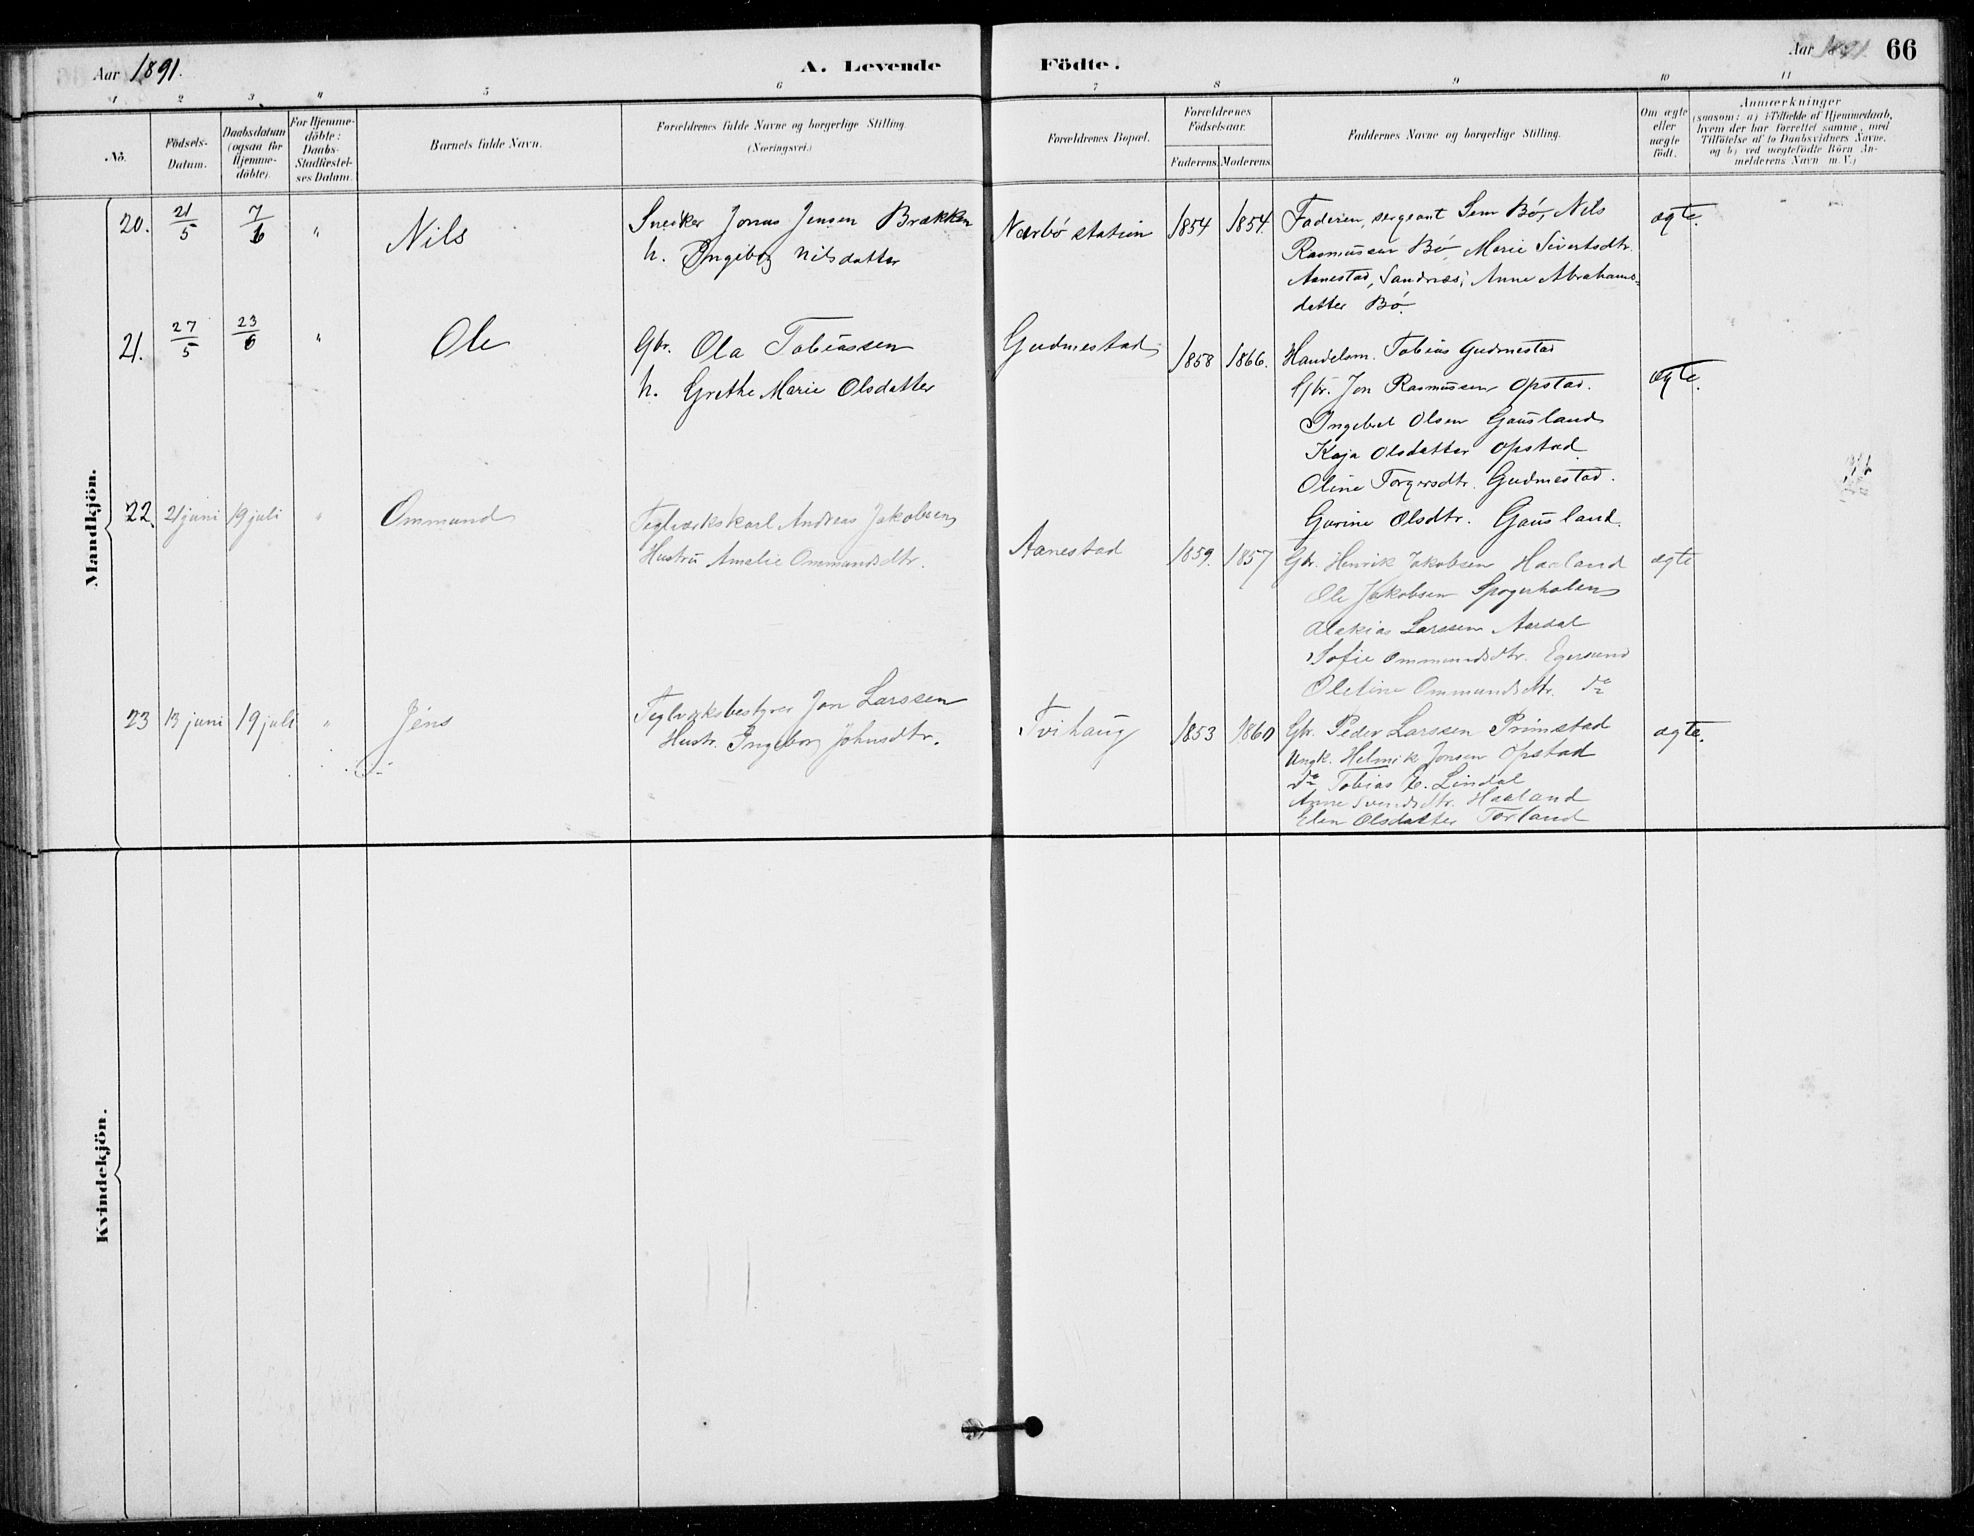 Aar 1891.
A. Levende Födte.
Aar 1891. 66
1 2 3 4 5 6 7 8 9 10 11
No.
Födsels-
Datum.
Daabsdatum
(ogsaa for
Hjemme-
döbte).
For Hjemme-
döbte:
Daabs-
Stadfæstel-
ses Datum.
Barnets fulde Navn.
Forældrenes fulde Navne og borgerlige Stilling.
(Næringsvei.)
Forældrenes Bopæl.
Forældrenes
Födselsaar.
Faderens. Moderens.
Faddernes Navne og borgerlige Stilling.
Om ægte
eller
uægte
født.
Anmærkninger
(saasom: a) i Tilfælde af Hjemmedaab,
hvem der har forrettet samme, med
Tilföielse af to Daabsvidners Navne.
og b) ved uægtefödte Börn An-
melderens Navn m. V.)
Mandkjön.
20. 21/5 7/6 " Nils
Snedker Jonas Jensen Brækken
h. Ingeborg Nilsdatter
Nærbö station 1854 1854.
Faderen, sergeant Sem Bö, Nils
Rasmussen Bö, Marie Sivertsdtr.
Aanestad, Sandnæs, Anne Abrahams-
datter Bö.
ægte.
21. 27/5 23/6 " Ole
Gbr. Ola Tobiassen
h. Grethe Marie Olsdatter
Gudmestad 1858 1866.
Handelsm. Tobias Gudmestad
Gbr. Jon Rasmussen Opstad.
Ingebret Olsen Gausland
Kaja Olsdatter Opstad
Oline Torgersdtr. Gudmestad.
Gurine Olsdtr. Gausland.
ægte.
22. 21 juni 19 juli " Ommund
Teglværkskarl Andreas Jakobsen
Hustru Amalie Ommundsdtr.
Aanestad 1859. 1857
Gbr. Henrik Jakobsen Haaland
Ole Jakobsen
Larssen Aardal
Sofie Ommundsdtr. Egersund
Oletine Ommundsdtr. do
ægte
23 13 juni 19 juli " Jens
Teglværksbestyrer Jon Larssen
Hustr. Ingeborg Johnsdtr.
Tvihaug 1853 1860
Gbr. Peder Larssen Primstad
Ungk. Helmik Jonsen Opstad
do Tobias E. Lindal
Anne Svendsdtr. Haaland
Elen Olsdatter Torland
ægte.
Kvindekjön.